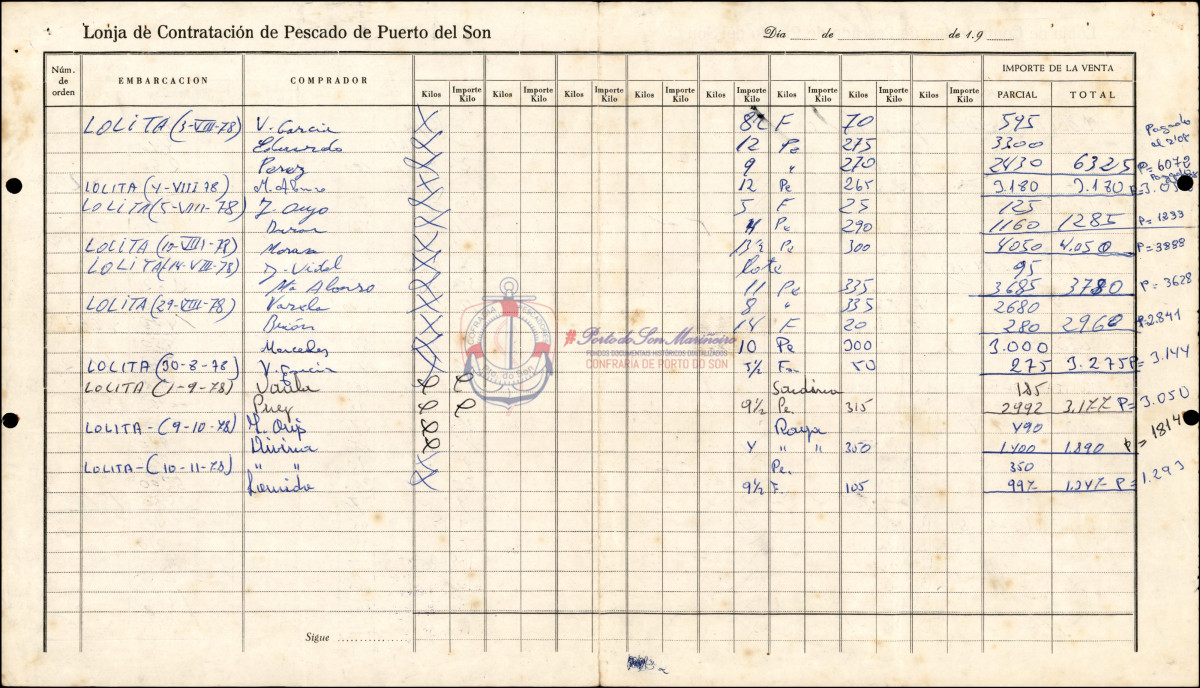 Lonja de Contratación de Pescado de Puerto del Son Día de de 1.9
Núm. de orden EMBARCACION COMPRADOR Kilos Importe Kilo Kilos Importe Kilo Kilos Importe Kilo Kilos Importe Kilo Kilos Importe Kilo Kilos Importe Kilo Kilos Importe Kilo Kilos Importe Kilo IMPORTE DE LA VENTA PARCIAL TOTAL
LOLITA (3-VIII-78) V. Garcia F 70 595 Pagado
Eduardo 12 Pe 275 3300
Perez 9 " 270 2430 6325 P=6072
LOLITA (4-VIII 78) M. Alonso 12 Pe 265 3.180 3.180
LOLITA (5-VIII-78) J. 5 F 25 125
4 Pe 290 1160 1285 P=1233
LOLITA (10-VIII-78) 13½ Pe 300 4050 4.050 P=3888
LOLITA (14-VIII-78) J. Vidal Lote 95
Mª Alonso 11 Pe 335 3685 3780 P=3628
LOLITA (29-VIII-78) Varela 8 " 335 2680
Brión 14 F 20 280 2960 P=2841
Mercedes 10 Pe 300 3.000
LOLITA (30-8-78) V. Garcia 5½ 50 275 3.275 P=3.144
LOLITA (1-9-78) Varela Sardina 185
9½ Pe. 315 2992 3.177 P=3.050
LOLITA-(9-10-78) Raya 490
Divina 4 " " 350 1400 1.890 P=1814
LOLITA-(10-11-78) " " Pe. 350
9½ F. 105 997 P=1.293
Sigue
CONFRARÍA DE PESCADORES
Pto. do Son
#Porto do Son Mariñeiro
FONDOS DOCUMENTAIS HISTÓRICOS DIGITALIZADOS
CONFRARÍA DE PORTO DO SON